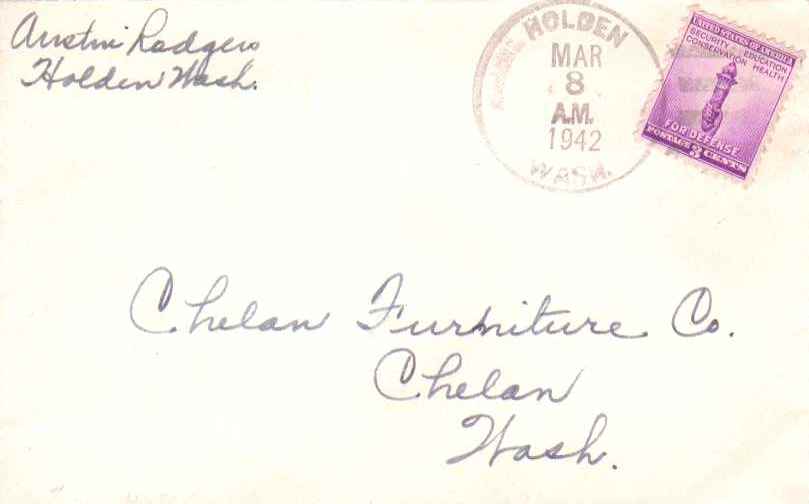 Austin Rodgers
Holden Wash.
HOLDEN
MAR
8
A.M.
1942
WASH.
UNITED STATES OF AMERICA
SECURITY EDUCATION
CONSERVATION HEALTH
FOR DEFENSE
POSTAGE 3 CENTS
Chelan Furniture Co.
Chelan
Wash.